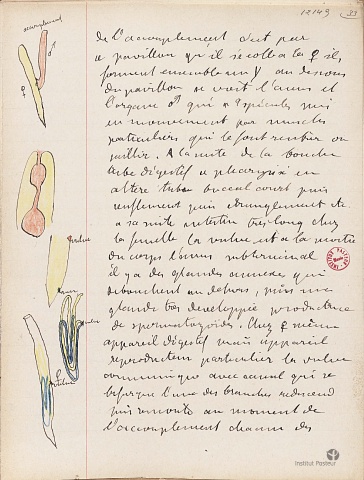 12149
33
accouplement
♂
♀
de l'accouplement c'est par
ce pavillon qu'il se colle à la ♀ ils
forment ensemble un Y au dessous
du pavillon se voit l'anus et
l'organe ♂ qui a spicules mis
en mouvement par muscles
particuliers qui le font rentrer ou
jaillir. A la suite de la bouche
tube digestif a pharynx
buccal court puis
renflement puis étranglement et
à sa suite intestin très long chez
la femelle la vulve est à la moitié
vulve
du corps l'anus subterminal
il y a des glandes annexes qui
débouchent au dehors, puis une
anus
glande très développée productrice
de spermatozoïdes. Chez ♀ même
appareil digestif mais appareil
reproducteur particulier la vulve
communique avec canal qui se
bifurque l'une des branches redescend
puis remonte au moment de
l'accouplement chacun des
INSTITUT PASTEUR
Institut Pasteur